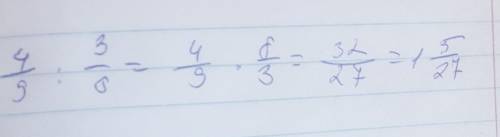 4/9 : 3/8 = 4/9 · 8/3 = 32/27 = 1 5/27